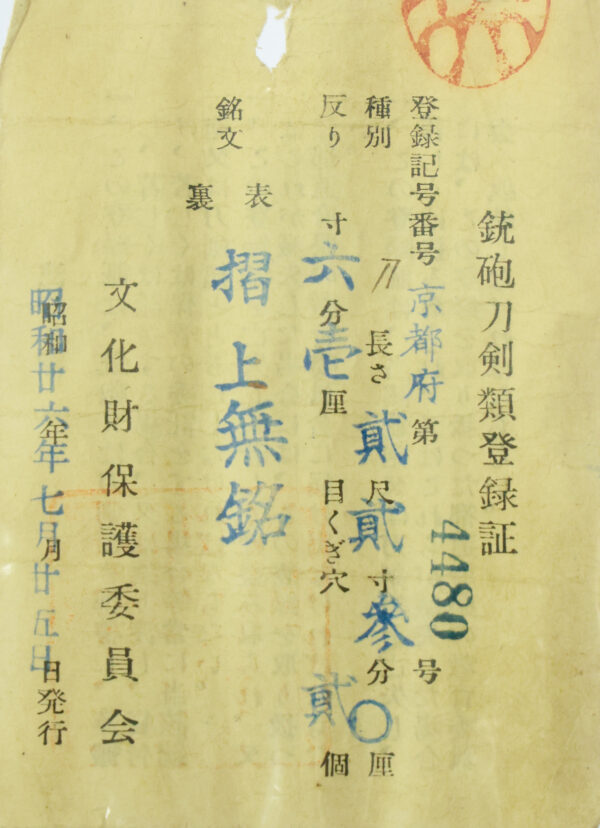 銃砲刀剣類登録証
登録記号番号 京都府 第 4480 号
種別 刀 長さ 貳尺貳寸参分〇厘
反り 寸六分壱厘 目くぎ穴 貳個
銘文 表 摺上無銘
裏
文化財保護委員会
昭和廿六年七月廿五日発行